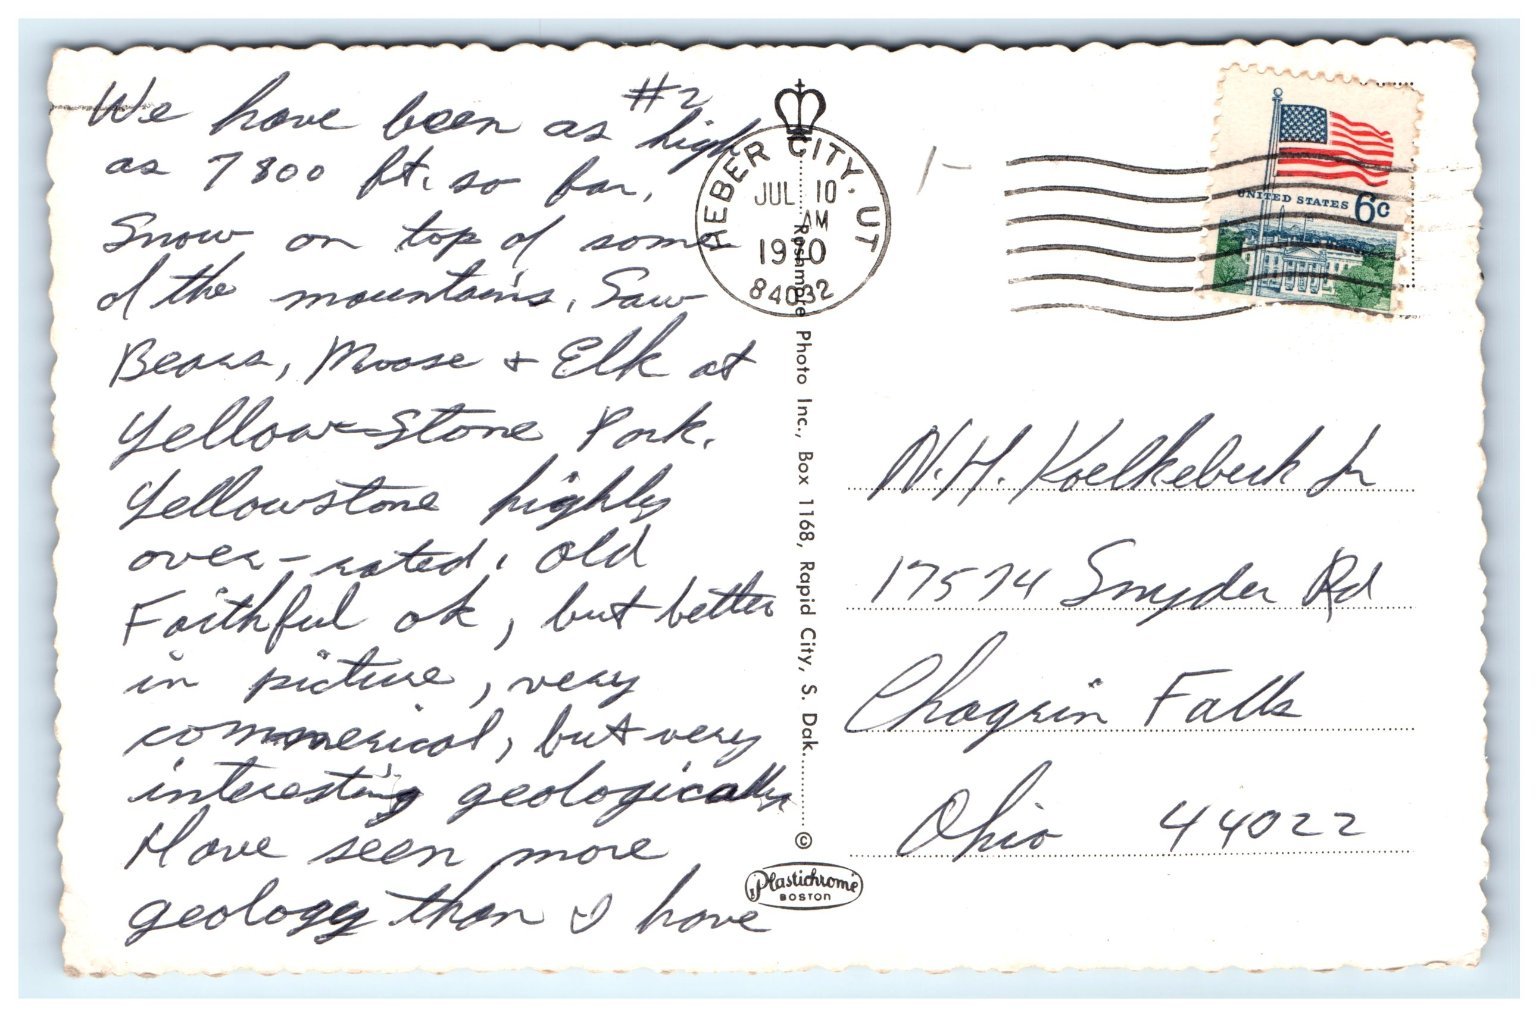 #2
We have been as high
as 7800 ft. so far.
Snow on top of some
of the mountains. Saw
Bears, Moose + Elk at
Yellow-Stone Park.
Yellowstone highly
over-rated. Old
Faithful ok, but better
in picture, very
commerical, but very
interesting geologically
Have seen more
geology than I have
HEBER CITY, UT
JUL 10
AM
1970
84032
Rushmore Photo Inc., Box 1168, Rapid City, S. Dak.
©
Plastichrome
BOSTON
UNITED STATES 6c
N.H. Koelkebeck Jr
17574 Snyder Rd
Chagrin Falls
Ohio 44022